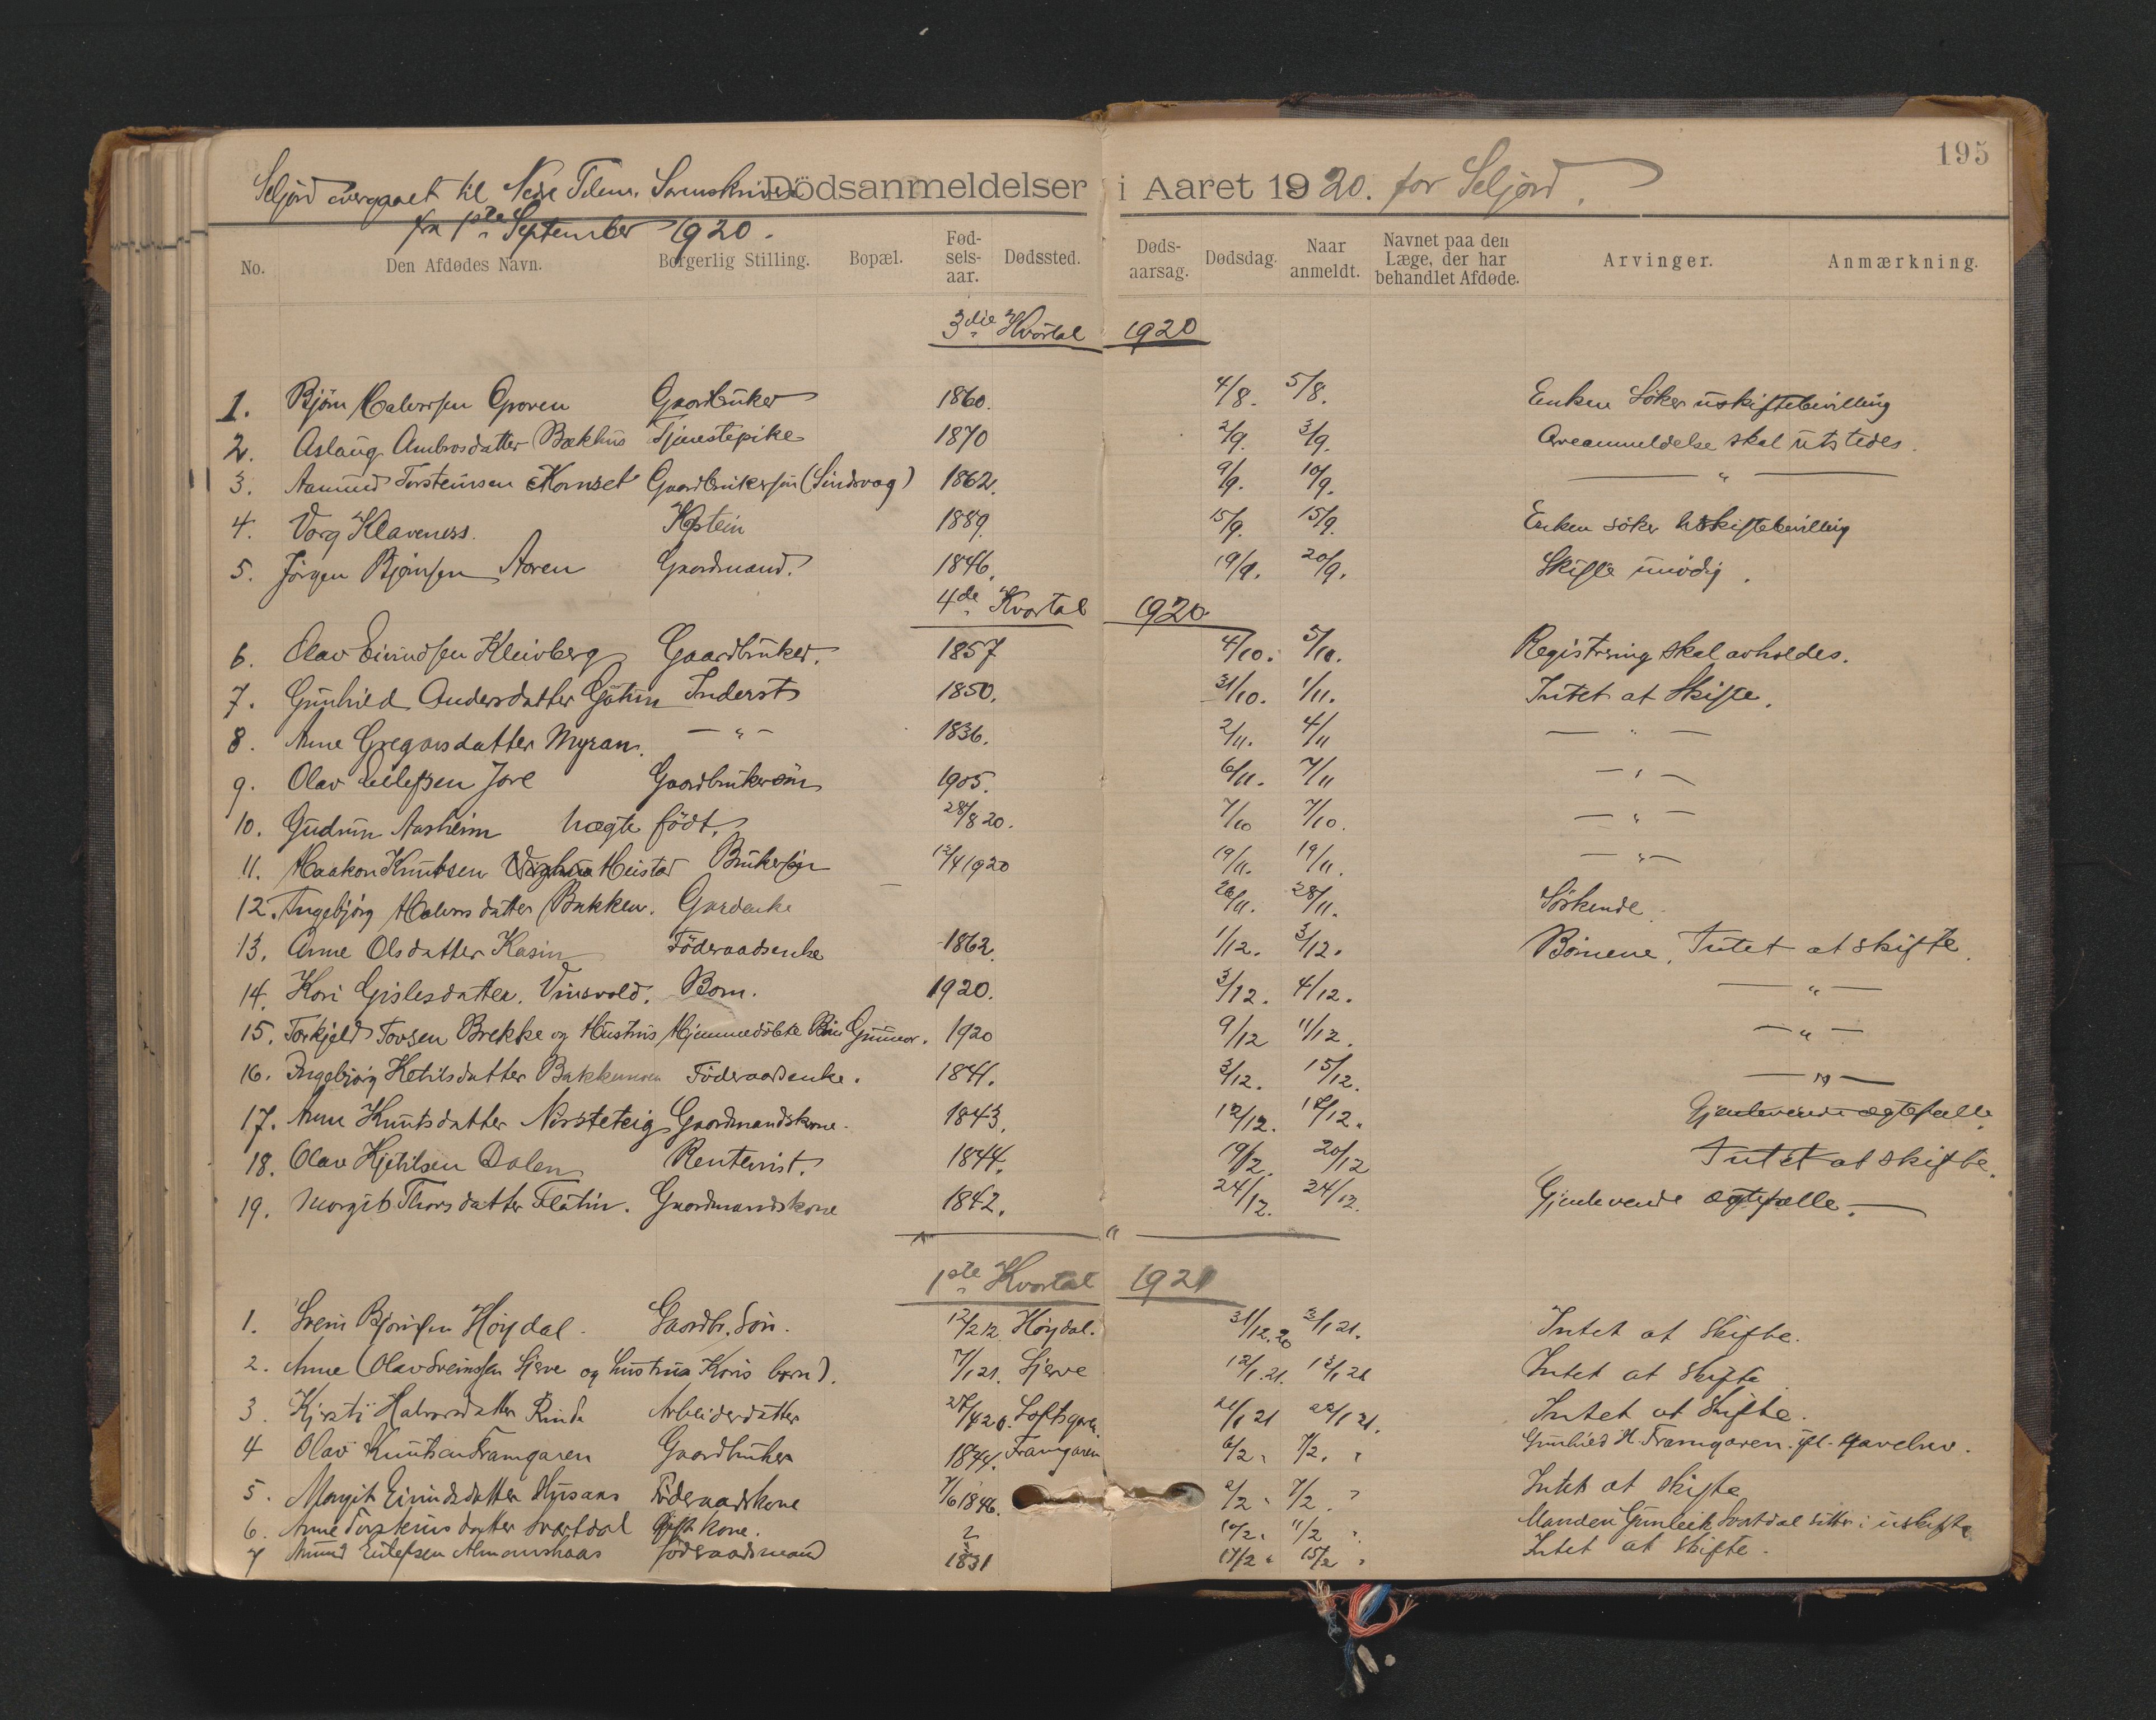 195
Seljord overgaaet til Nedre Telem. Sorenskriveri Dödsanmeldelser i Aaret 1920. for Seljord.
fra 1ste September 1920.
No. Den Afdødes Navn. Borgerlig Stilling. Bopæl. Fødselsaar. Dødssted. Dødsaarsag. Dødsdag. Naar anmeldt. Navnet paa den Læge, der har behandlet Afdøde. Arvinger. Anmærkning.
3die Kvartal 1920
1. Bjørn Halvorsen Groven Gaardbruker 1860. 4/8. 5/8. Enken söker uskiftebevilling
2. Aslaug Ambrosdatter Bækhus Tjenestepike 1870 2/9. 3/9. Arveanmeldelse skal utstedes.
3. Aamund Torsteinsen Kornset Gaardbrukersøn (Sindsvag) 1862. 9/9. 10/9. — " —
4. Varg Klaveness. Kaptein 1889. 15/9. 15/9. Enken söker uskiftebevilling
5. Jörgen Bjørnsen Aoren Gaardmand. 1846. 19/9. 20/9. Skifte unödig.
4de Kvartal 1920
6. Olav Eivindsen Kleivberg Gaardbruker. 1857 4/10. 5/10. Registrering skal avholdes.
7. Gunhild Andersdatter Götun Inderst 1850. 31/10. 1/11. Intet at Skifte.
8. Anne Gregarsdatter Myran. — " — 1836. 2/11. 4/11 — " —
9. Olav Eilefsen Jore Gaardbrukersön 1905. 6/11. 7/11 — " —
10. Gudrun Aasheim uægte födt. 28/8 20. 7/10 7/10. — " —
11. Haakon Knutsen Heistad Brukersön 12/4 1920 19/11. 19/11. — " —
12. Ingebjörg Halvorsdatter Bakken. Gardenke 26/11. 28/11. Söskende.
13. Anne Olsdatter Kasin Föderaadsenke 1862. 1/12. 3/12. Börnene. Intet at skifte.
14. Kari Gislesdatter. Vinsvold. Barn. 1920. 3/12. 4/12. — " —
15. Torkjeld Tovsen Brekke og Hustrus Hjemmedöbte Barn Gunnar. 1920 9/12 11/12. — " —
16. Ingebjörg Ketilsdatter Bakkemoen Föderaadsenke. 1841. 3/12. 15/12. — " —
17. Anne Knutsdatter Nordsteteig Gaardmandskone. 1843. 12/12. 17/12. Gjenlevende ægtefælle.
18. Olav Kjetilsen Dalen Rentenist. 1844. 19/12. 20/12 Intet at skifte.
19. Margit Thorsdatter Flatin. Gaardmandskone 1842. 24/12. 24/12. Gjenlevende ægtefælle. —
1ste Kvartal 1921
1. Svein Bjørnsen Høydal. Gaardbr. Sön. 12/2 12. Höydal. 31/12.20 3/1 21. Intet at skifte.
2. Anne (Olav Sveinssen Ljerve og hustru Karis barn). 7/1 21. Ljerve 12/1.21. 13/1 21 Intet at skifte
3. Kjersti Halvorsdatter Rinde Arbeiderdatter 27/4 20. Loftsgarden. 21/1 21 22/1 21. Intet at skifte.
4 Olav Knutsen Framgaren Gaardbruker 1844. Framgaren 6/2 " 7/2. " Gunhild H. Framgaren. gl. gavebrev.
5. Margit Eivindsdatter Husaas Föderaadskone 7/6 1846. 2/2 " 7/2. " Intet at skifte
6. Anne Torsteinsdatter Svartdal Gift kone. ? 10/2 " 11/2 " Manden Gunleik Svartdal sitter i uskifte.
7 Amund Eilefsen Almanshaas föderaadsmand 1831 14/2 " 15/2 " Intet at skifte.